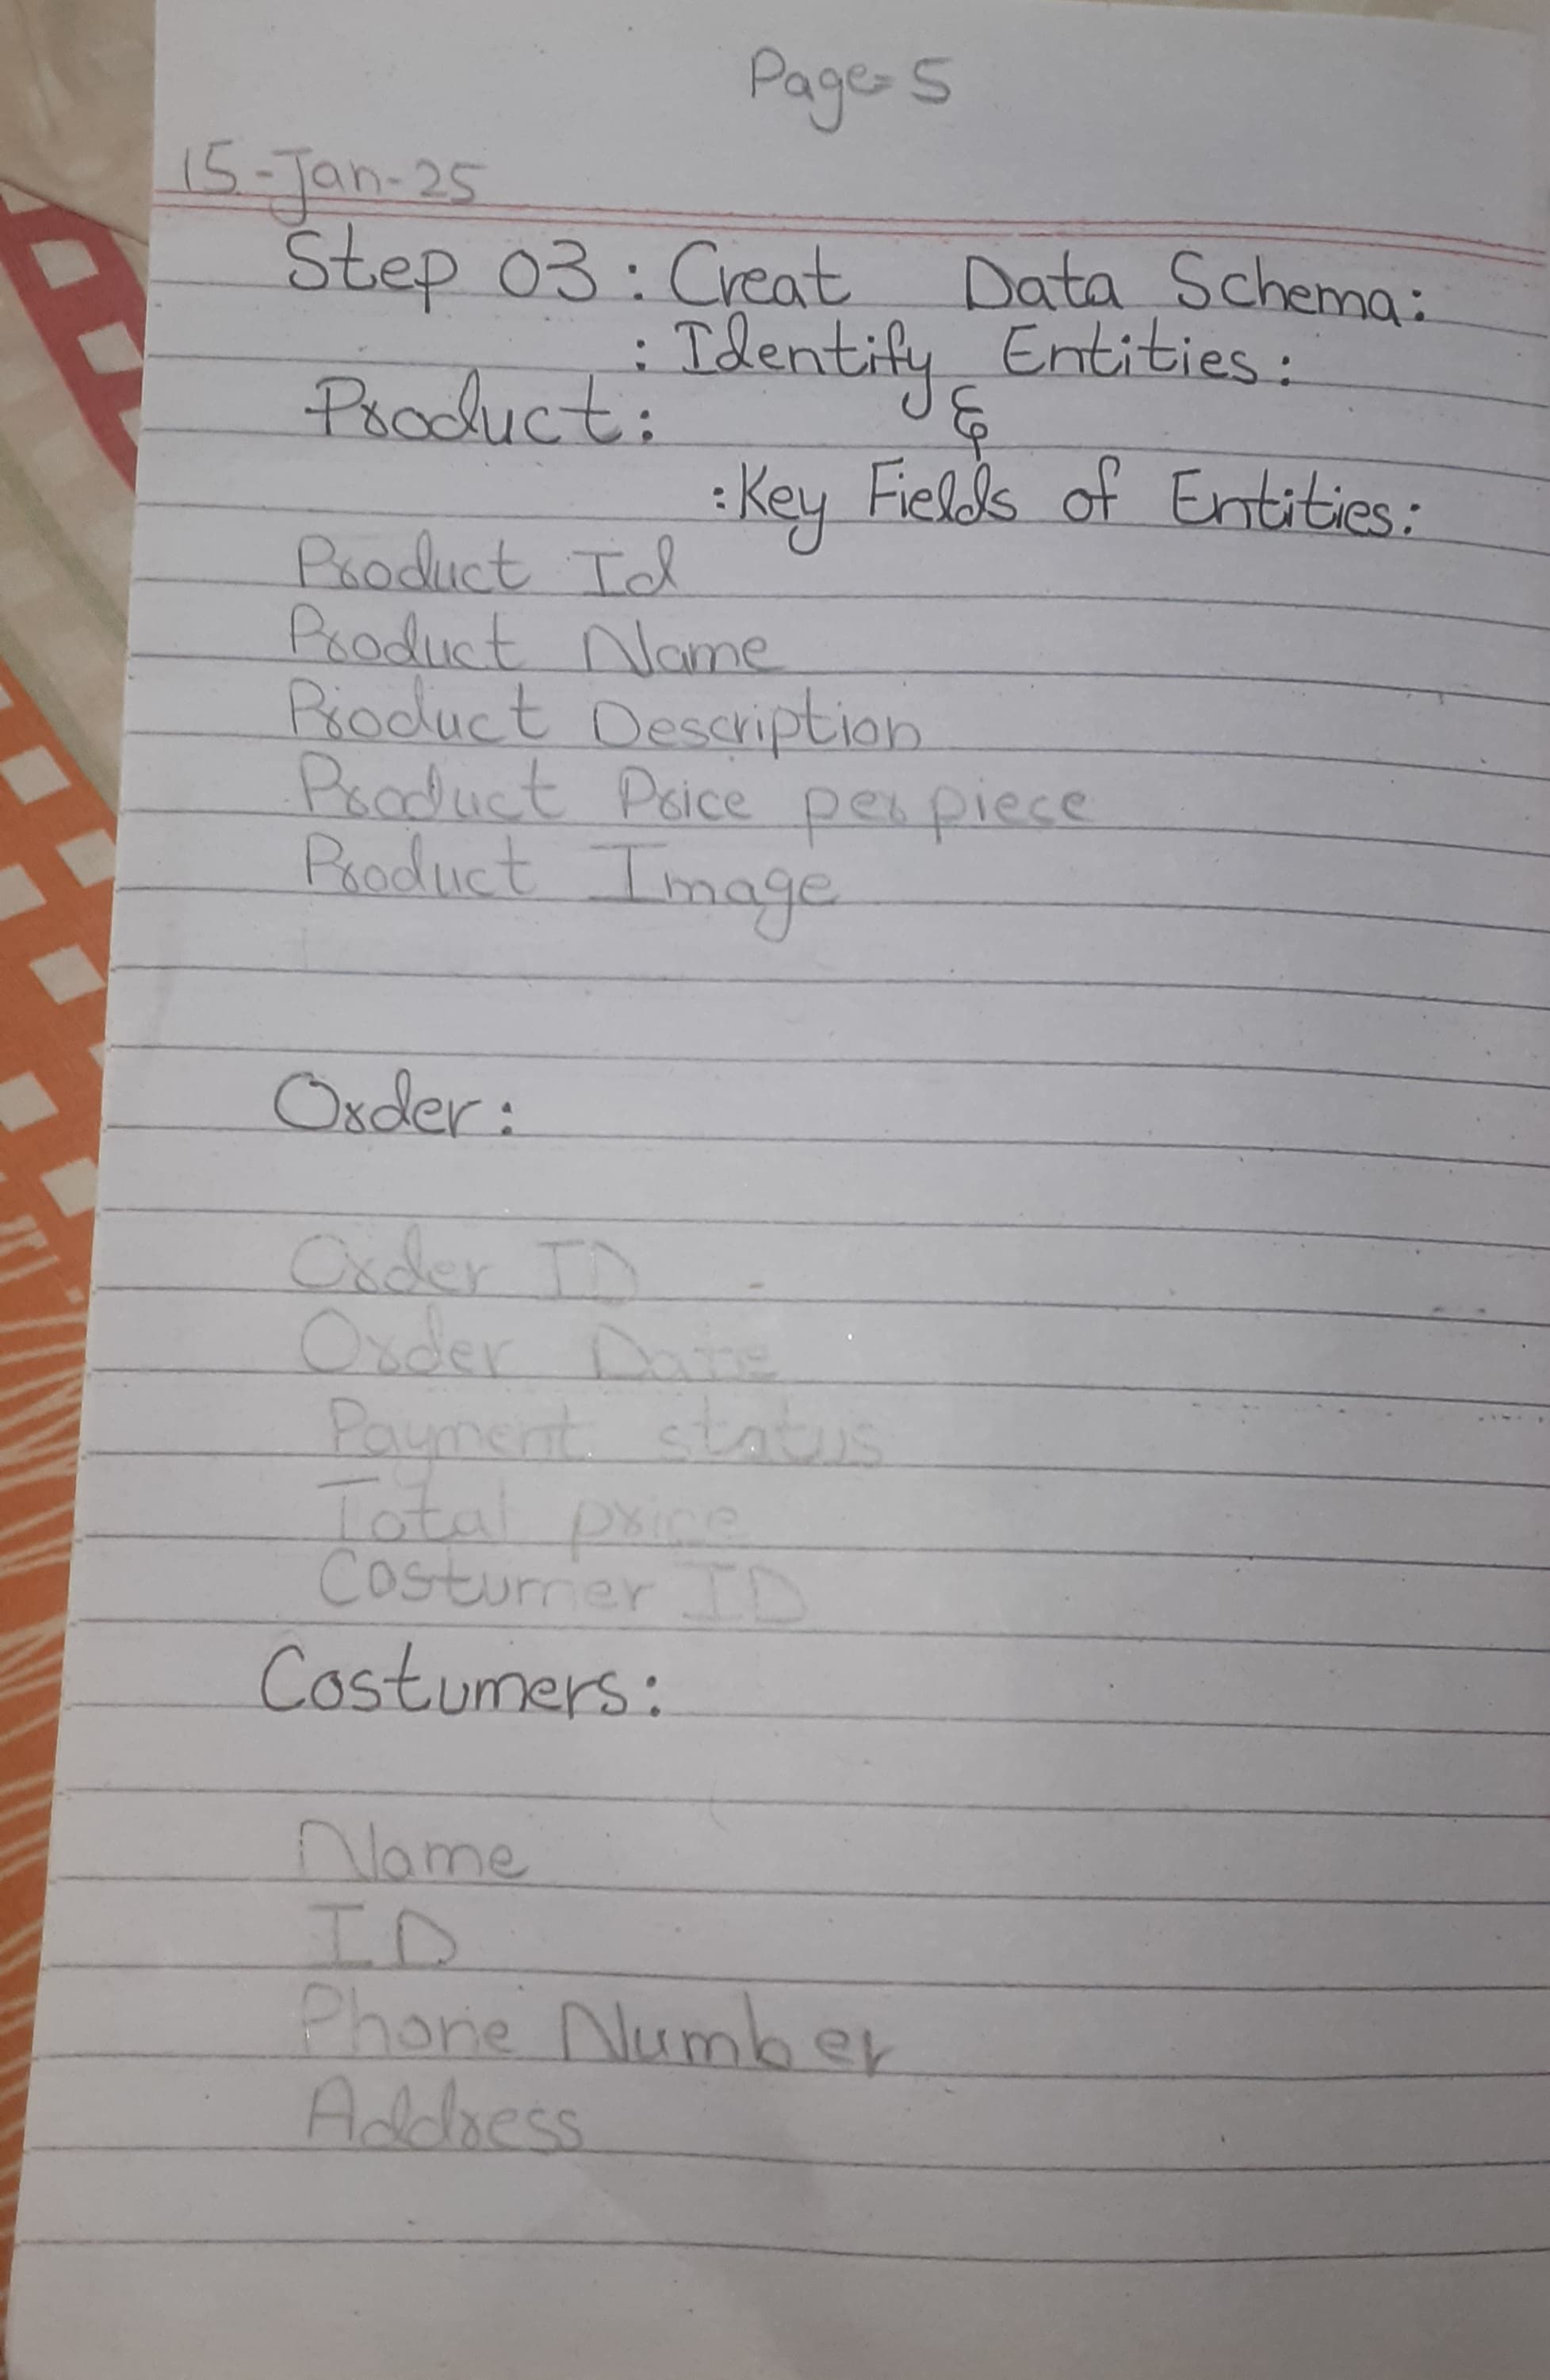 Page=5
15-Jan-25
Step 03: Creat Data Schema:
: Identify Entities:
Product: &
:Key Fields of Entities:
Product Id
Product Name
Product Description
Product Price per piese
Product Image
Order:
Order ID
Order Date
Payment status
Total price
Costumer ID
Costumers:
Name
ID
Phone Number
Address